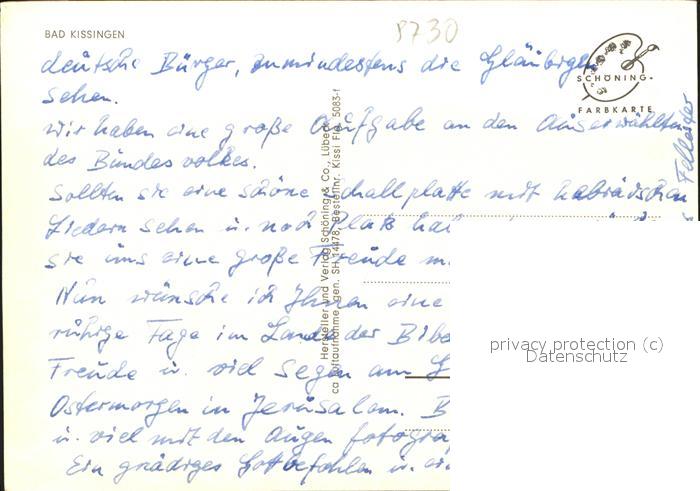 BAD KISSINGEN
8730
deutsche Bürger, zumindestens die Gläubigen
sehen.
SCHÖNING·
FARBKARTE
Wir haben eine große Aufgabe an den Auserwählten
des Bundesvolkes.
Sollten sie eine schöne Schallplatte mit hebräischen
Liedern sehen u. noch Platz ha
sie uns eine große Freude m
Nun wünsche ich Ihnen eine
ruhige Tage im Lande der Bibe
Freude u. viel Segen am
Ostermorgen in Jerusalem. B
u. viel mit den Augen fotogra
Ein gnädiges Gottbefohlen u. ei
Hersteller und Verlag Schöning & Co., Lübeck
ca Luftaufnahme, gen. SH 14478, Bestellnr. Kissi Flu. 5083-f
privacy protection (c)
Datenschutz